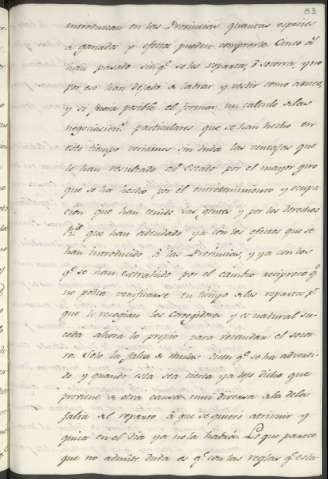 83
introduzcan en las Provincias quantas especies
de ganados y efectos puedan comprarse. Cinco a.s
han pasado sin q.e se les reparta, ò socorra, y no
por eso han dejado de labrar y vestir como antes,
y si fuera posible el formar un calculo de las
negociacion.s particulares que se han hecho en
este tiempo veriamos sin duda las ventajas que
le han resultado al Estado por el mayor giro
que se ha hecho por el entretenimiento y ocupa
cion que han tenido sus gentes y por los derechos
R.s que han adeudado ya con los efectos que se
han introducido à las Provincias, y ya con los
q.e se han extrahido por el cambio reciproco q.e
no podia verificarse en tiempo de los repartos p.r
que lo recogian los Corregidores y es natural su
ceda ahora lo propio para recaudar el socor
ro. Solo la falta de mulas dicen q.e se ha adverti
do y quando esta sea cierta ya dejo dicho que
proviene de otra causa mui diversa de la de la
falta del reparto à que se quiere atribuir y
quiza en el dia ya no la habrà. Lo que parece
que no admite duda es q.e con las reglas q.e esta